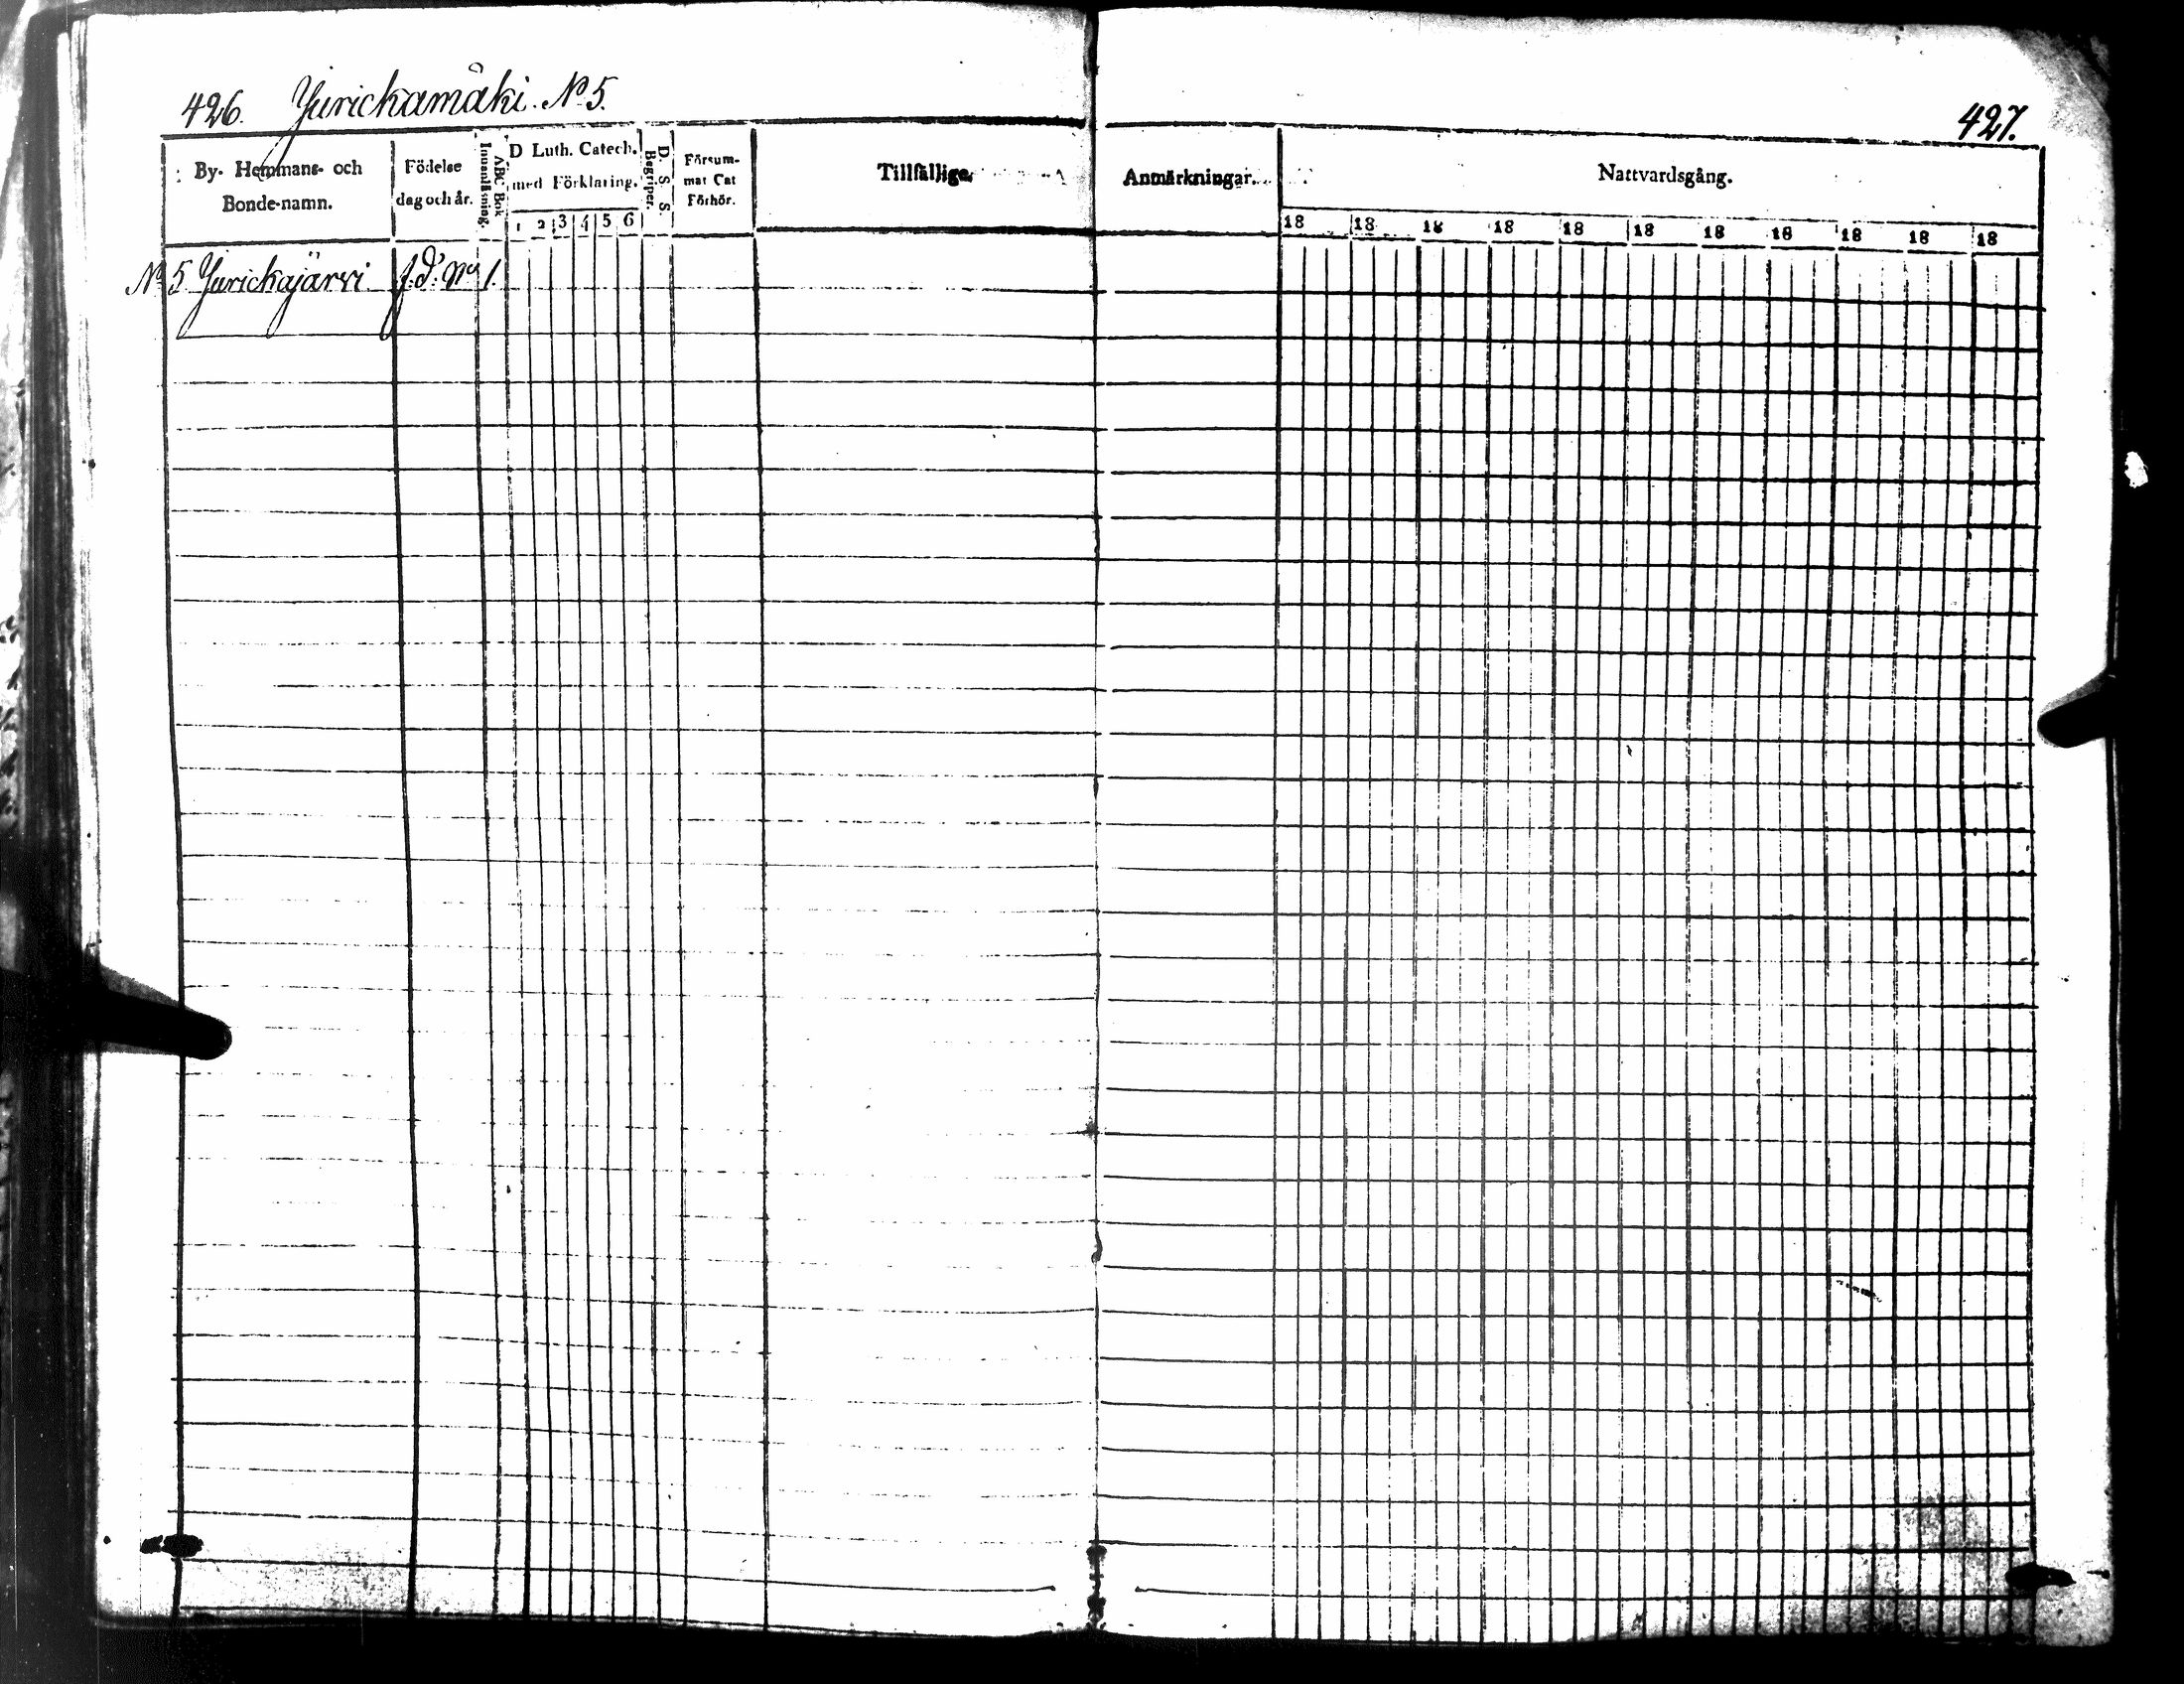 426. Jurickamäki. No 5.
427.
By- Hemmans- och Bonde-namn.
Födelse dag och år.
ABC Bok Innanläsning.
D Luth. Catech. med Förklaring.
1 2 3 4 5 6
D. S. S. Begriper.
Försum- mat Cat Förhör.
Tillfällige
Anmärkningar.
Nattvardsgång.
18 18 18 18 18 18 18 18 18 18 18
No 5 Jurickajärvi. f.d. No 1.